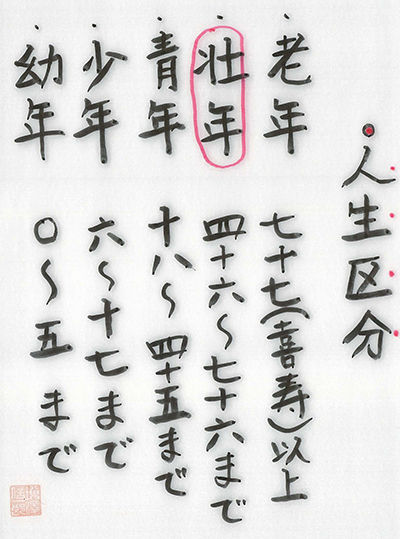 ・人生区分
・老年 七十七(喜寿)以上
・壮年 四十六〜七十六まで
・青年 十八〜四十五まで
・少年 六〜十七まで
・幼年 〇〜五まで